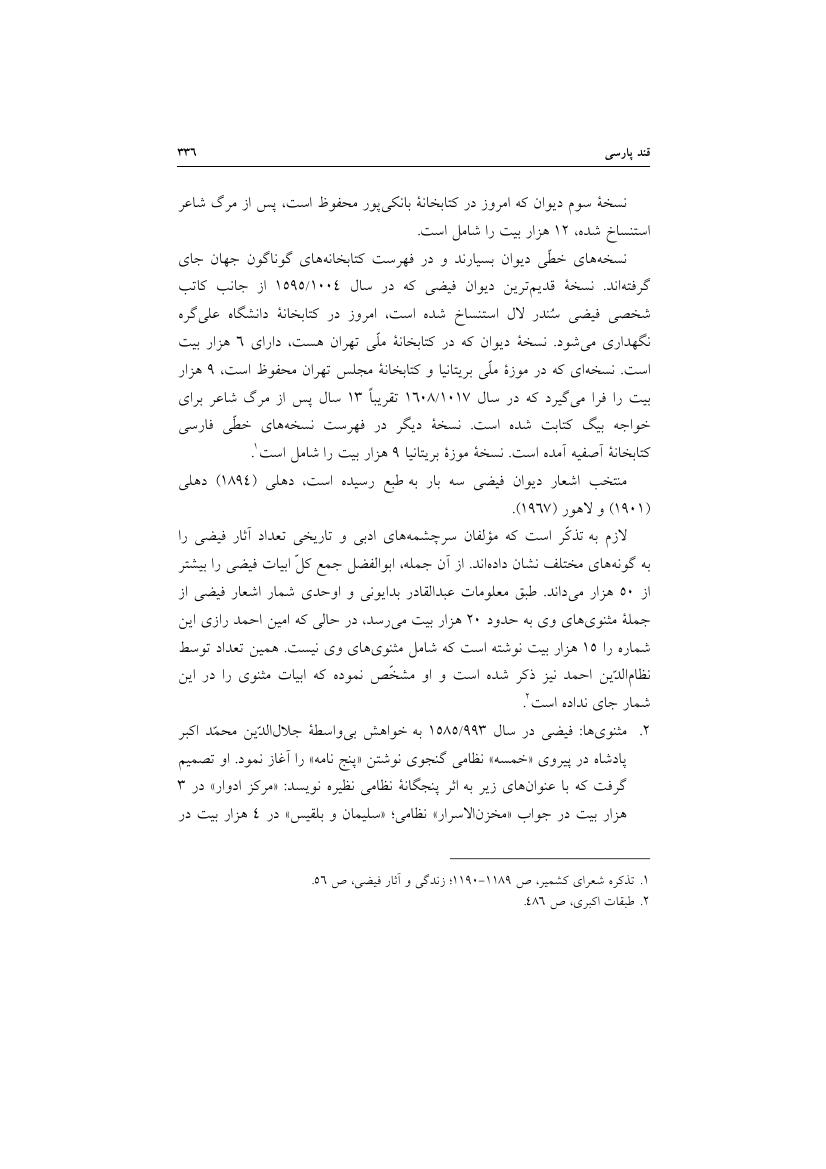 قند پارسی ۳۳۶
نسخهٔ سوم دیوان که امروز در کتابخانهٔ بانکی‌پور محفوظ است، پس از مرگ شاعر
استنساخ شده، ۱۲ هزار بیت را شامل است.
نسخه‌های خطّی دیوان بسیارند و در فهرست کتابخانه‌های گوناگون جهان جای
گرفته‌اند. نسخهٔ قدیم‌ترین دیوان فیضی که در سال ۱۵۹۵/۱۰۰۴ از جانب کاتب
شخصی فیضی سُندر لال استنساخ شده است، امروز در کتابخانهٔ دانشگاه علی‌گره
نگهداری می‌شود. نسخهٔ دیوان که در کتابخانهٔ ملّی تهران هست، دارای ۶ هزار بیت
است. نسخه‌ای که در موزهٔ ملّی بریتانیا و کتابخانهٔ مجلس تهران محفوظ است، ۹ هزار
بیت را فرا می‌گیرد که در سال ۱۶۰۸/۱۰۱۷ تقریباً ۱۳ سال پس از مرگ شاعر برای
خواجه بیگ کتابت شده است. نسخهٔ دیگر در فهرست نسخه‌های خطّی فارسی
کتابخانهٔ آصفیه آمده است. نسخهٔ موزهٔ بریتانیا ۹ هزار بیت را شامل است۱.
منتخب اشعار دیوان فیضی سه بار به طبع رسیده است، دهلی (۱۸۹۴) دهلی
(۱۹۰۱) و لاهور (۱۹۶۷).
لازم به تذکّر است که مؤلفان سرچشمه‌های ادبی و تاریخی تعداد آثار فیضی را
به گونه‌های مختلف نشان داده‌اند. از آن جمله، ابوالفضل جمع کلّ ابیات فیضی را بیشتر
از ۵۰ هزار می‌داند. طبق معلومات عبدالقادر بدایونی و اوحدی شمار اشعار فیضی از
جملهٔ مثنوی‌های وی به حدود ۲۰ هزار بیت می‌رسد، در حالی که امین احمد رازی این
شماره را ۱۵ هزار بیت نوشته است که شامل مثنوی‌های وی نیست. همین تعداد توسط
نظام‌الدّین احمد نیز ذکر شده است و او مشخّص نموده که ابیات مثنوی را در این
شمار جای نداده است۲.
۲. مثنوی‌ها: فیضی در سال ۱۵۸۵/۹۹۳ به خواهش بی‌واسطهٔ جلال‌الدّین محمّد اکبر
پادشاه در پیروی «خمسه» نظامی گنجوی نوشتن «پنج نامه» را آغاز نمود. او تصمیم
گرفت که با عنوان‌های زیر به اثر پنجگانهٔ نظامی نظیره نویسد: «مرکز ادوار» در ۳
هزار بیت در جواب «مخزن‌الاسرار» نظامی؛ «سلیمان و بلقیس» در ۴ هزار بیت در
۱. تذکره شعرای کشمیر، ص ۱۱۸۹-۱۱۹۰؛ زندگی و آثار فیضی، ص ۵۶.
۲. طبقات اکبری، ص ۴۸۶.